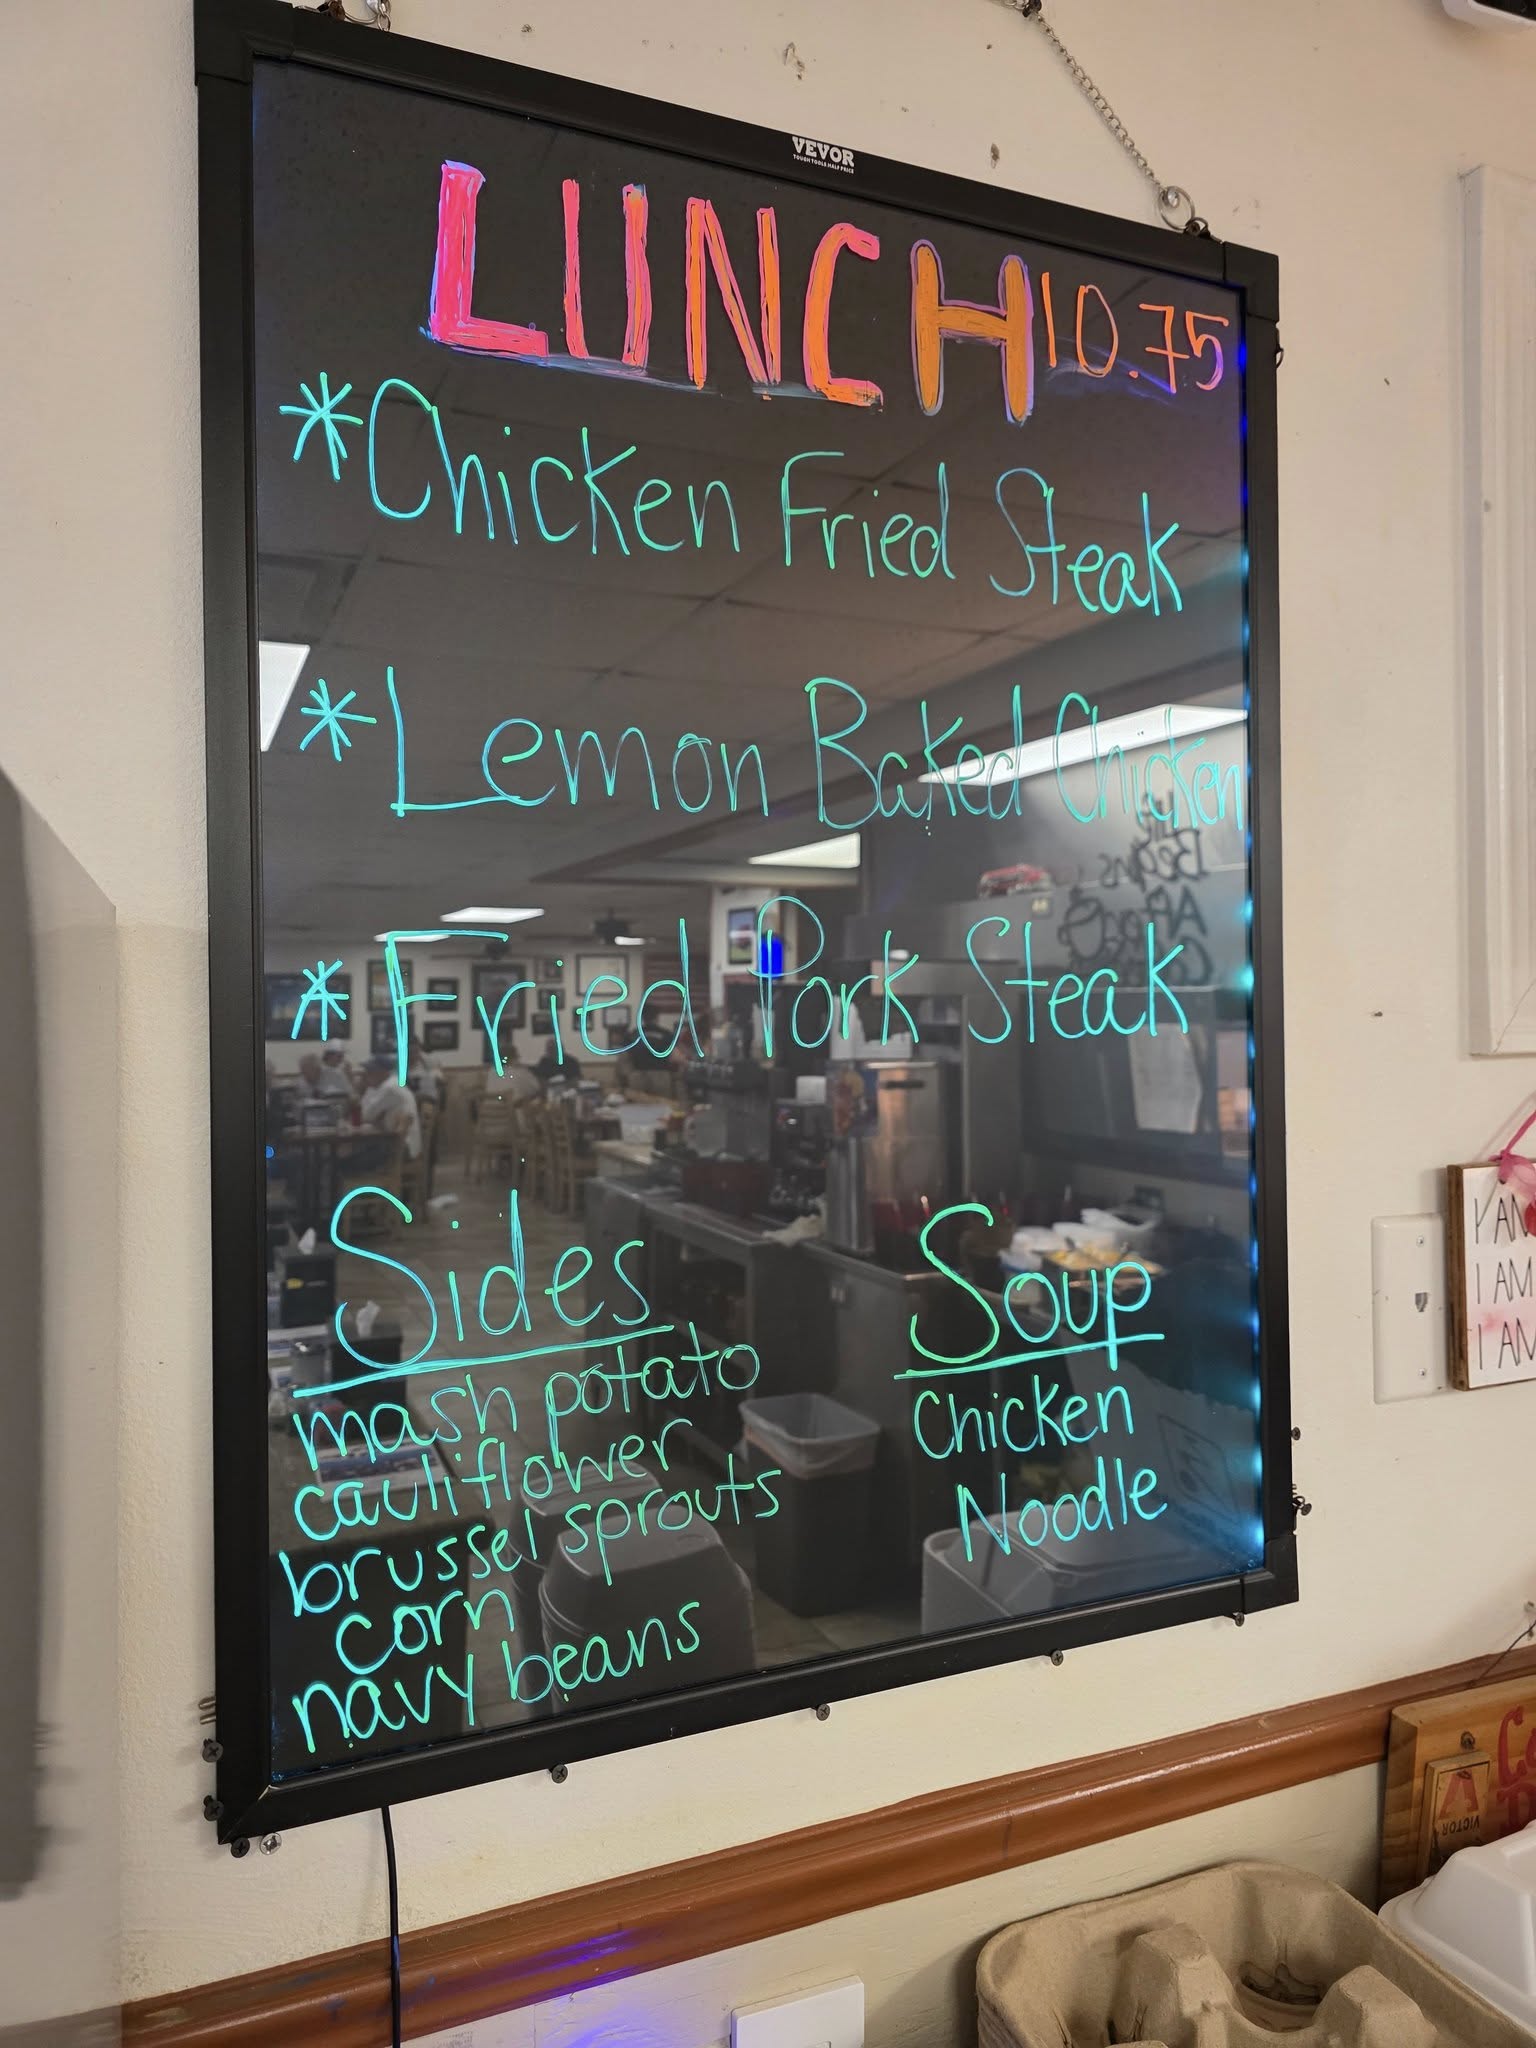 VEVOR
TOUGH TOOLS, HALF PRICE
LUNCH 10.75
*Chicken Fried Steak
*Lemon Baked Chicken
*Fried Pork Steak
Sides
mash potato
cauliflower
brussel sprouts
corn
navy beans
Soup
Chicken
Noodle
I AM
I AM
VICTOR